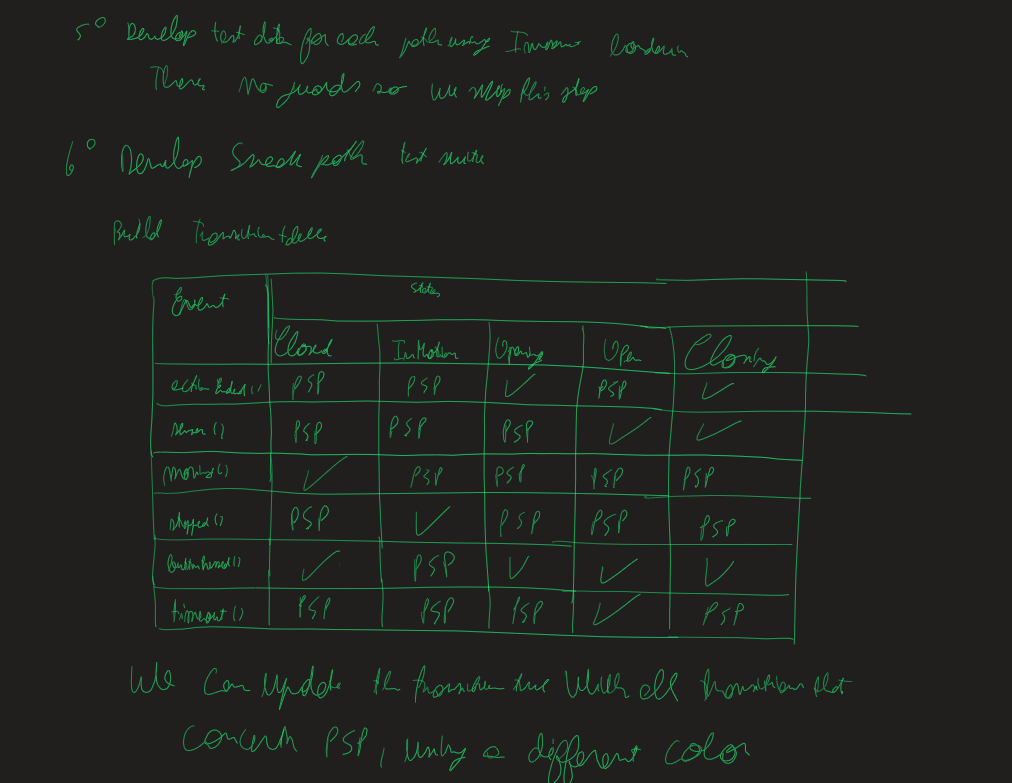 5° Develop test data for each path using Invariant boundary
There No guards so we skip this step
6° Develop Sneak path test suite
Build Transition table
Event States
Closed InMotion Opening Open Closing
actionEnded() PSP PSP ✓ PSP ✓
sensor() PSP PSP PSP ✓ ✓
moving() ✓ PSP PSP PSP PSP
stopped() PSP ✓ PSP PSP PSP
buttonPressed() ✓ PSP ✓ ✓ ✓
timeout() PSP PSP PSP ✓ PSP
We can update the transition tree With all transitions that
concern PSP, using a different color